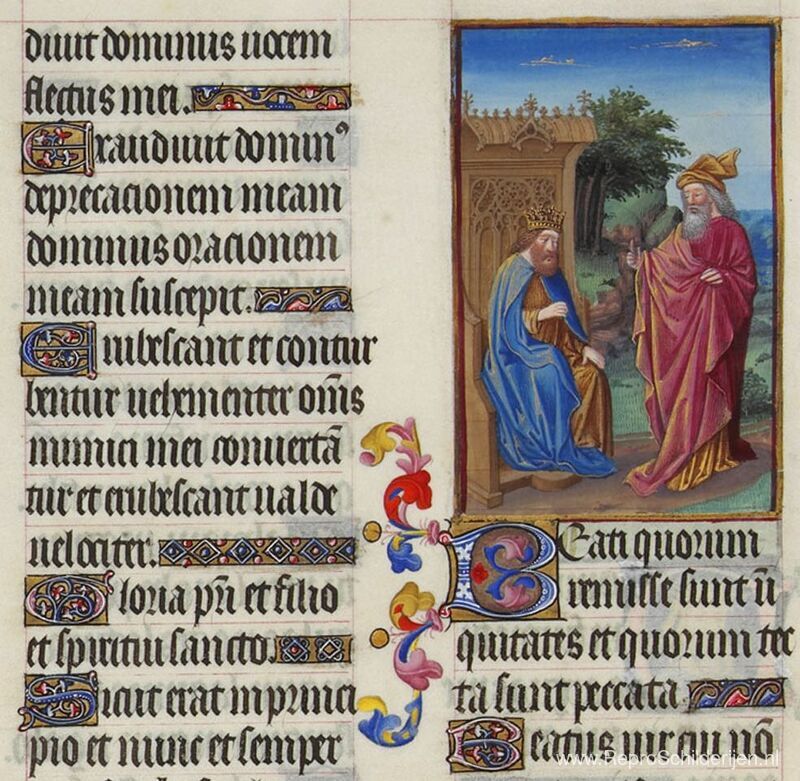 diuit dominus uocem
flectus mei.
Exaudiuit dominꝰ
deprecacionem meam
dominus oracionem
meam suscepit.
Erubescant et contur
bentur uehementer om̄s
inimici mei conuertā
tur et erubescant ualde
uelociter.
Gloria pr̄i et filio
et spiritui sancto.
Sicut erat in princi
pio et nunc et semper
Beati quorum
remisse sunt īi
quitates et quorum tec
ta sunt peccata.
Beatus uir cui nō
www.ReproSchilderijen.nl